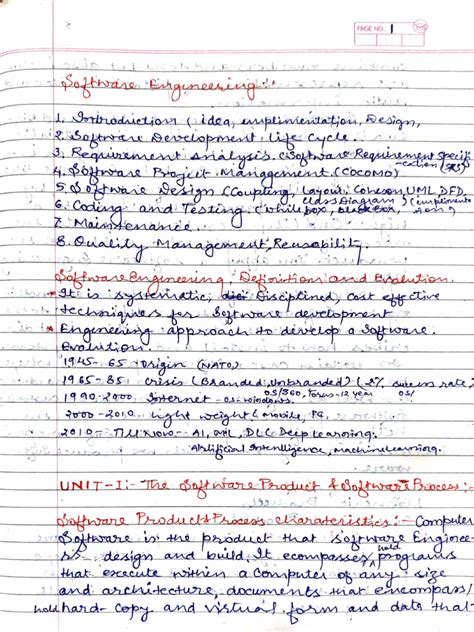 PAGE NO. 1
Software Engineering :-
1. Introduction (idea, emplimentation, Design,
2. Software Development life Cycle.
3. Requirement Analysis (Software Requirement Specifi-
cation (SRS)
4. Software Project Management (COCOMO)
5. Software Design (Coupling, Layout, Coheson, UML DFD,
class Diagram) (emplimenta
6. Coding and Testing (while box, black box, tion)
7. Maintenance.
8. Quality Management, Reusability.
Software Engineering Definition and Evolution.
* It is systematic, Disciplined, cost effective
techniques for Software development
* Engineering approach to develop a Software.
Evolution.
1945-65 Origin (NATO)
1965-85 crisis (Branded, Unbranded) (2% success rate,
OS/360, 12 year OS/
1990-2000 Internet - windows.
2000-2010 light weight (mobile, PC.
2010- Till Now- AI, ML, DL (Deep Learning.
Artificial Intelligence, machine learning.
UNIT-I:- The Software Product & Software Process:-
Software Product & Process charateristics:- Computer
Software is the product that Software Enginee-
rs design and build. It ecompasses hold programs
that execute within a Computer of any size
and architecture, documents that encompass/
hold hard-copy and virtual form and data that-